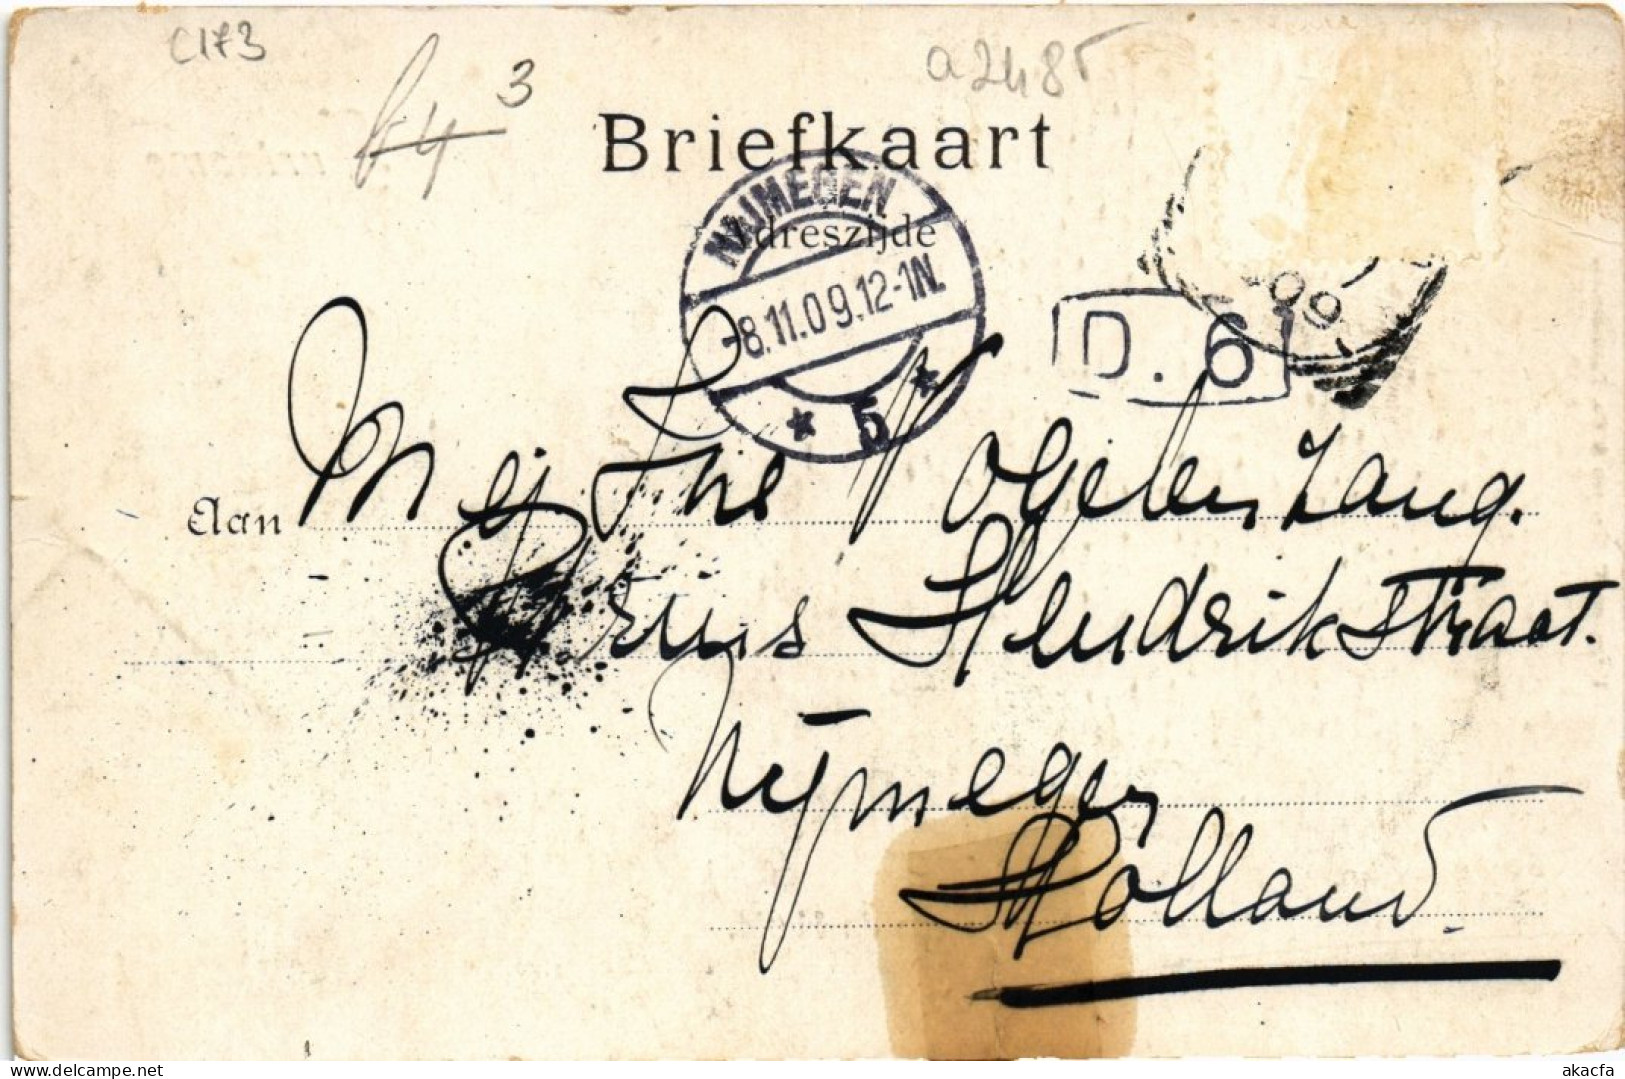 C173
64 3
a2485
Briefkaart
Adreszijde
NIJMEGEN
-8.11.09.12-1N.
* 5 *
09
D. 6
Aan Mej Vogelenzang.
Prins Hendrikstraat.
Nijmegen
Holland.
delcampe.net
akacfa